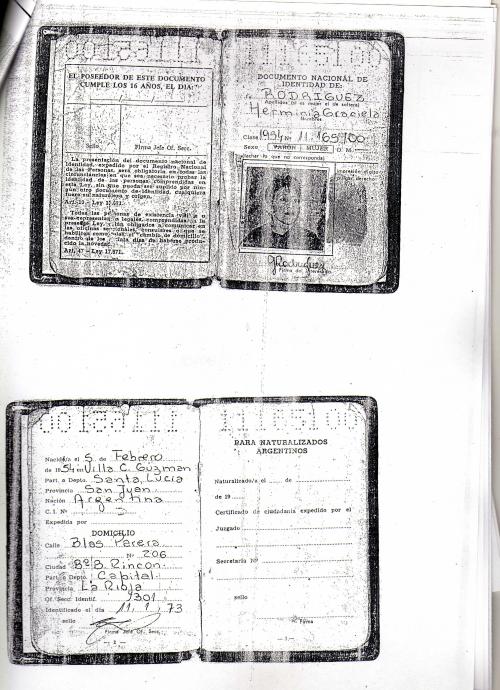 EL POSEEDOR DE ESTE DOCUMENTO
CUMPLE LOS 16 AÑOS, EL DIA:
Sello Firma Jefe Of. Secc.
La presentación del documento nacional de
identidad, expedido por el Registro Nacional
de las Personas, será obligatoria en todas las
circunstancias en que sea necesario probar la
identidad de las personas comprendidas en
esta Ley, sin que pueda ser suplido por nin-
gún otro documento de identidad, cualquiera
fuere su naturaleza y origen.
Art. 13 - Ley 17.671.
Todas las personas de existencia visible o
sus representantes legales, comprendidas en la
presente Ley, están obligadas a comunicar en
las oficinas seccionales, consulares o que se
habiliten como tales, el "cambio de domicilio",
dentro de los treinta días de haberse produ-
cido la novedad.
Art. 47 - Ley 17.671.
DOCUMENTO NACIONAL DE
IDENTIDAD DE:
RODRIGUEZ
Apellidos (si es mujer el de soltera)
Herminia Graciela
Nombres
Clase 1954 Nº 11.165.700
Sexo VARON MUJER O. M.
(tachar lo que no corresponda)
Impresión dígito
pulgar derecho
HRodriguez
Nacido/a el 5 de Febrero
de 1954 en Villa C. Guzman
Part. o Depto. Santa Lucia
Provincia San Juan
Nación Argentina
C. I. Nº
Expedida por
DOMICILIO
Calle Blas Parera
Nº 206
Ciudad Bº B. Rincon
Part. o Depto. Capital
Provincia La Rioja
Of. Secc. Identif. 1301
Identificado el día 11, 1, 73
sello
Firma Jefe Of. Secc.
— 2 —
PARA NATURALIZADOS
ARGENTINOS
Naturalizado/a el de
de 19
Certificado de ciudadanía expedido por el
Juzgado
Secretaría Nº
sello
Firma
— 3 —